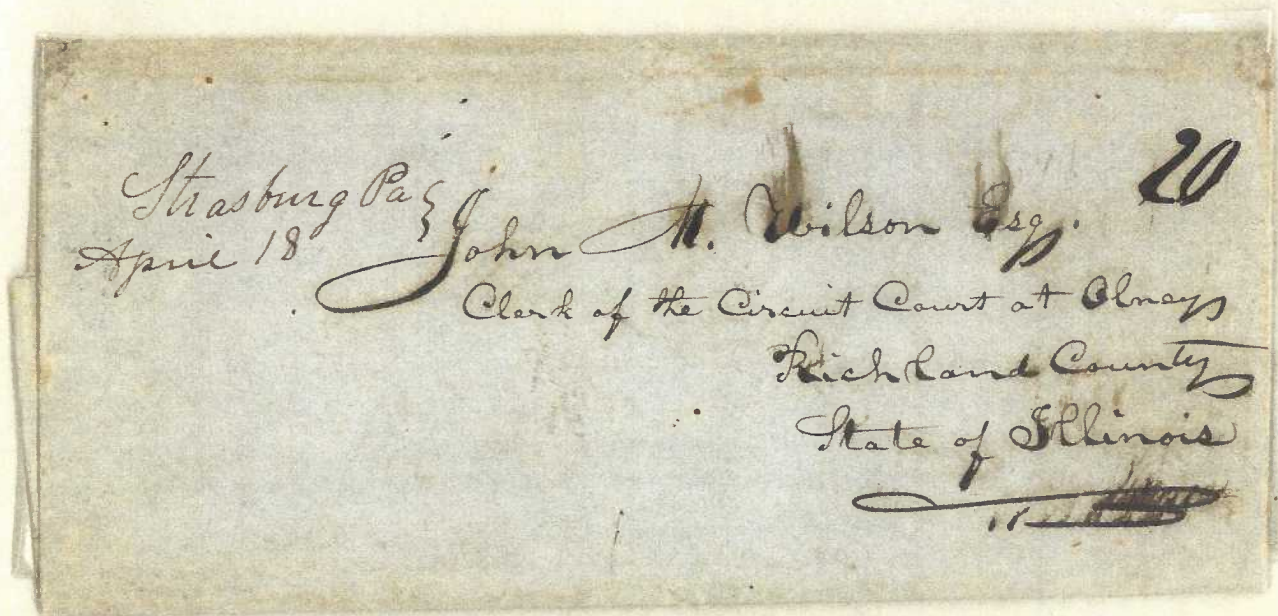 Strasburg Pa
April 18
20
John M. Wilson Esq.
Clerk of the Circuit Court at Olney
Richland County
State of Illinois